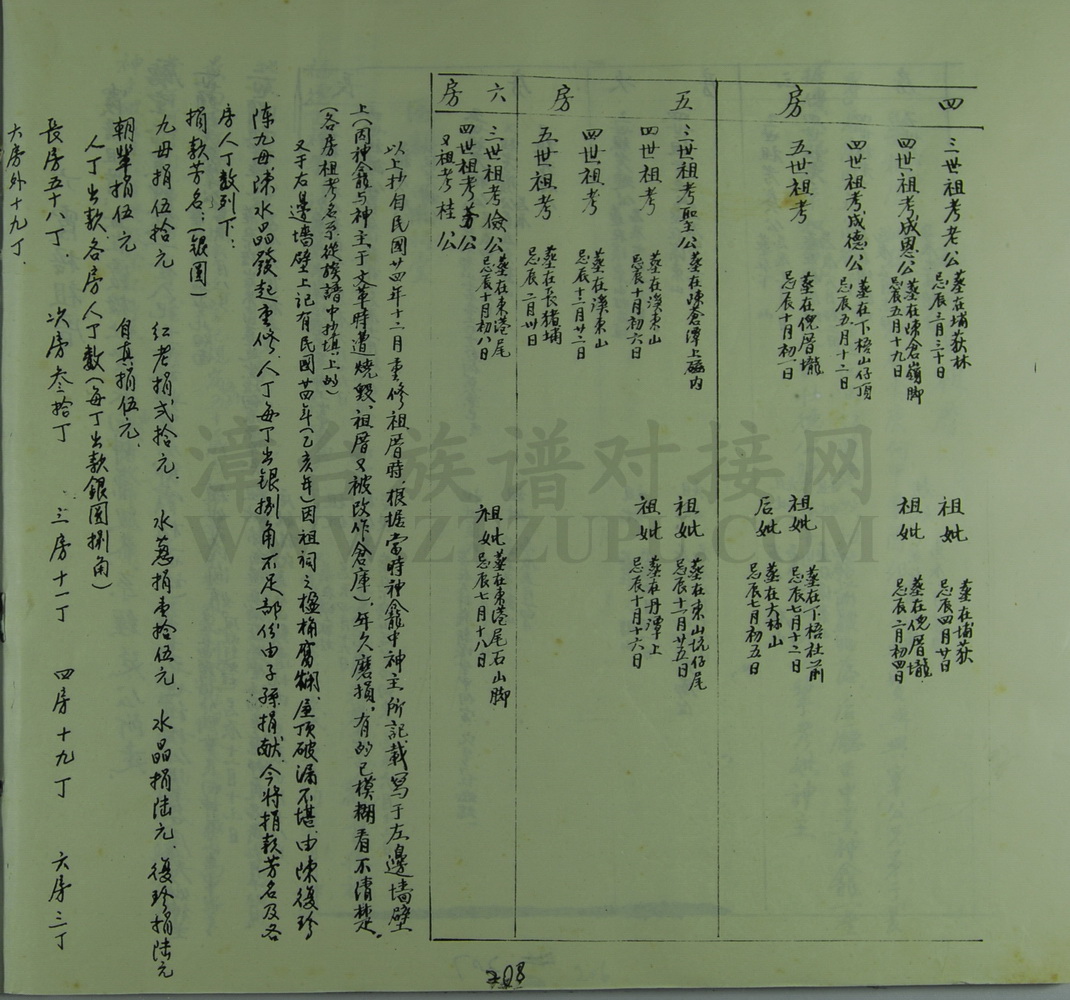 四房
三世祖考老公 墓在埔荻林 忌辰三月三十日 祖妣 墓在埔荻 忌辰四月廿日
四世祖考成恩公 墓在陳倉嶺脚 忌辰五月十九日 祖妣 墓在倪厝壠 忌辰二月初四日
四世祖考成德公 墓在下梧山仔頂 忌辰五月十二日
五世祖考 墓在倪厝壠 忌辰十月初一日 祖妣 墓在下梧社前 忌辰七月十二日
后妣 墓在大林山 忌辰七月初五日
五房
三世祖考聖公 墓在陳倉潭上礁内 祖妣 墓在東山坑仔尾 忌辰十一月廿五日
四世祖考 墓在溪東山 忌辰十月初六日 祖妣 墓在丹潭上 忌辰十月十六日
四世祖考 墓在溪東山 忌辰十二月廿二日
五世祖考 墓在長豬埔 忌辰二月卅日
六房
三世祖考儉公 墓在東港尾 忌辰十月初八日 祖妣 墓在東港尾石山脚 忌辰七月十八日
四世祖考公
又祖考桂公
以上抄自民國廿四年十二月重修祖厝時,根據當時神龕中神主所記載寫于左邊墻壁
上(因神龕与神主于文革時遭燒毀、祖厝又被改作倉庫),年久磨損,有的已模糊看不清楚。
(各房祖考名系從族譜中抄填上的)
又于右邊墻壁上記有民國廿四年(乙亥年)因祖祠之楹桷腐糊、屋頂破漏不堪,由陳復珍
陳九毋陳水晶發起重修,人丁每丁出銀捌角不足部份由子孫捐献,今將捐款芳名及各
房人丁数列下:
捐款芳名:(銀圓)
九毋捐伍拾元 紅老捐弍拾元 水蔥捐壹拾伍元 水晶捐陆元 復珍捐陆元
朝輦捐伍元 自真捐伍元
人丁出款各房人丁数(每丁出款銀圓捌角)
長房五十八丁 次房叁拾丁 三房十一丁 四房十九丁 六房三丁
六房外十九丁
漳台族谱对接网
WWW.ZTZUPU.COM